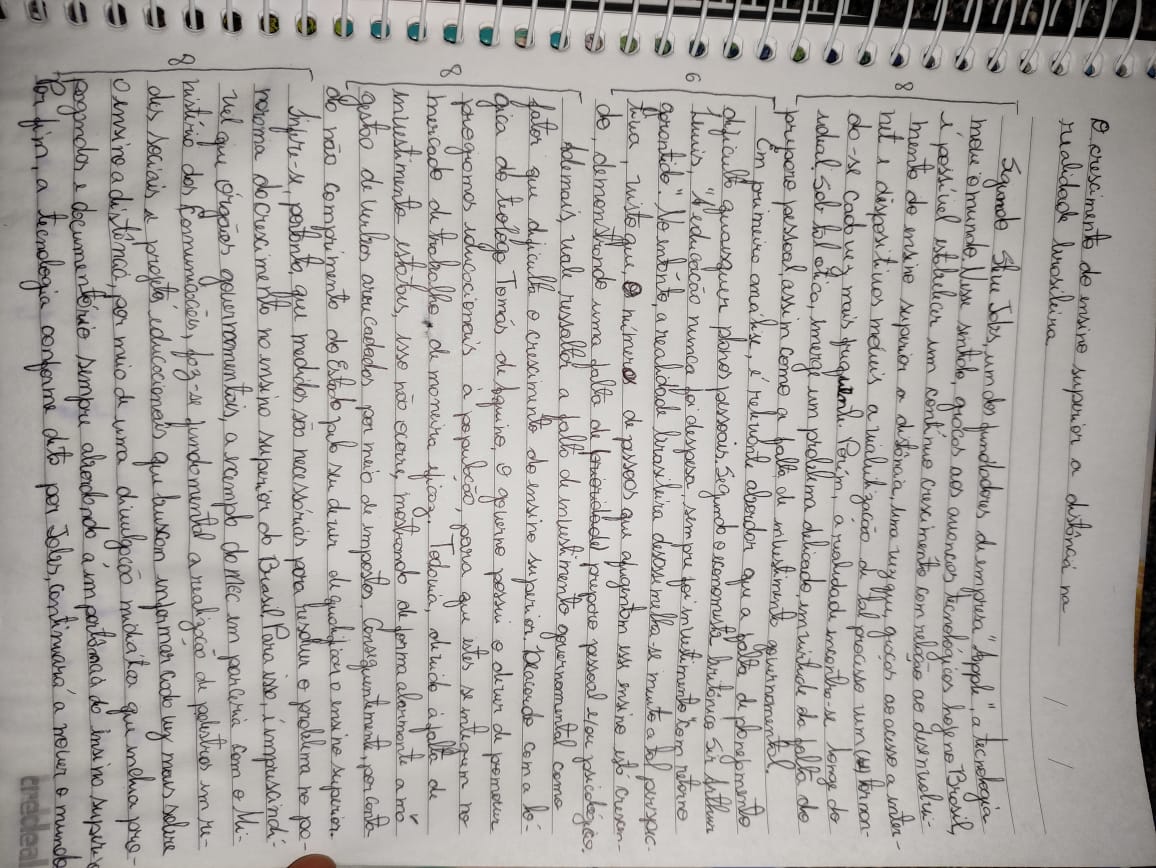 O crescimento do ensino superior a distância na
realidade brasileira
/ /
8
Segundo Steve Jobs, um dos fundadores da empresa "Apple", a tecnologia
move o mundo. Nesse sentido, graças aos avanços tecnológicos hoje no Brasil,
é possível estabelecer um contínuo crescimento com relação ao desenvolvi-
mento do ensino superior a distância, uma vez que, graças ao acesso a inter-
net e dispositivos móveis a realização de tal processo vem tornan-
do-se cada vez mais frequente. Porém, a realidade encontra-se longe do
ideal. Sob tal ótica, emerge um problema delicado, em virtude da falta do
preparo pessoal, assim como a falta de investimento governamental.
6
Em primeira análise, é relevante abordar que a falta de planejamento
dificulta quaisquer planos pessoais. Segundo o economista britânico Sir Arthur
Lewis, "A educação nunca foi despesa, sempre foi investimento com retorno
garantido". No entanto, a realidade brasileira dessemelha-se muito a tal perspec-
tiva, visto que, o número de pessoas que frequentam esse ensino está crescen-
do, demonstrando uma falta de preparo pessoal e/ou psicológico.
8
Ademais, vale ressaltar a falta de investimento governamental como
fator que dificulta o crescimento do ensino superior. De acordo com a ló-
gica do teólogo Tomás de Aquino, o governo possui o dever de promover
programas educacionais à população, para que estes se integrem no
mercado de trabalho, de maneira eficaz. Todavia, devido à falta de
investimento estatais, isso não ocorre, mostrando de forma alarmante a má
gestão de verbas arrecadadas por meio de impostos. Consequentemente, por conta
do não comprimento do Estado pelo seu dever dignificar o ensino superior.
8
Infere-se, portanto, que medidas são necessárias para resolver o problema no pa-
norama do crescimento no ensino superior do Brasil. Para isso, é imprescindí-
vel que órgãos governamentais, a exemplo do MEC em parceria com o Mi-
nistério das Comunicações, faz-se fundamental a realização de palestras em re-
des sociais e projetos educacionais que busquem informar cada vez mais sobre
o ensino a distância, por meio de uma divulgação midiática que inclua pro-
pagandas e documentários sempre abordando a importância do ensino superior
Por fim, a tecnologia conforme dito por Jobs, continuará a mover o mundo
credeal